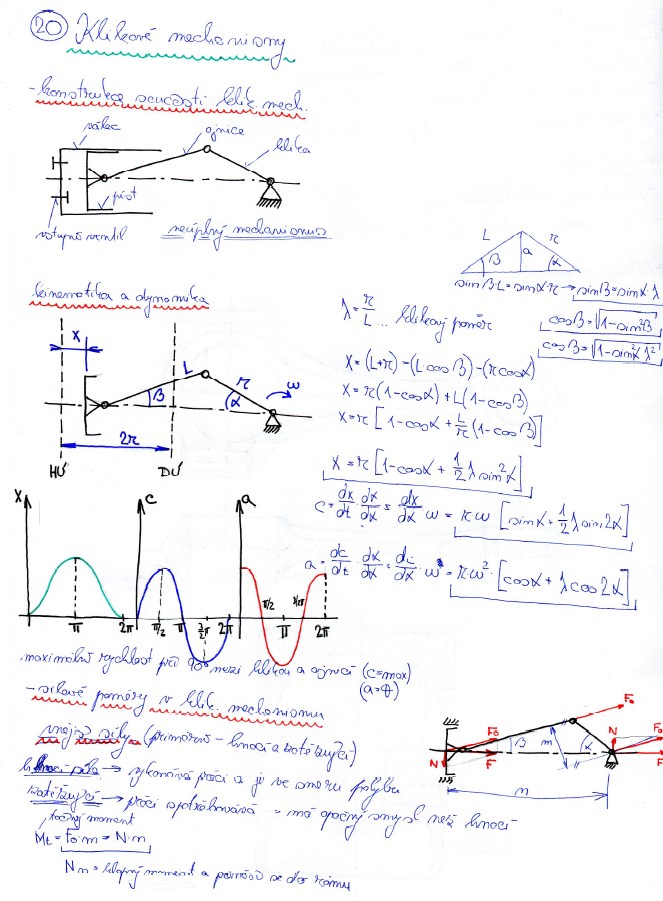 20 Klikové mechanismy
- konstrukce součástí klik. mech.
válec
ojnice
klika
píst
vstupní ventil
neúplný mechanismus
L r
β a α
sinβ·L = sinα·r → sinβ = sinα·λ
λ = r/L ... klikový poměr
cosβ = √(1-sin²β)
cosβ = √(1-sin²α λ²)
kinematika a dynamika
x
L r ω
β α
2r
HÚ DÚ
x = (L+r) - (L cosβ) - (r cosα)
x = r(1-cosα) + L(1-cosβ)
x = r [1-cosα + L/r (1-cosβ)]
x = r [1-cosα + 1/2 λ sin²α]
c = dx/dt · dα/dα = dx/dα · ω = rω [sinα + 1/2 λ sin2α]
a = dc/dt · dα/dα = dc/dα · ω = rω² · [cosα + λcos2α]
x c a
π 2π π/2 π 3/2π 2π π/2 π 3/2π 2π
maximální rychlost při 90° mezi klikou a ojnicí (c=max)
- silové poměry v klik. mechanismu
vnější síly (primární - hnací a zatěžující)
hnací síla → vykonává práci a je ve směru pohybu
zatěžující → práci spotřebovává - má opačný smysl než hnací
točný moment
Mt = Fo·m = N·n
N n = klopný moment a přenáší se do rámu
Fo
N Fo β m α N Fo
F F
n